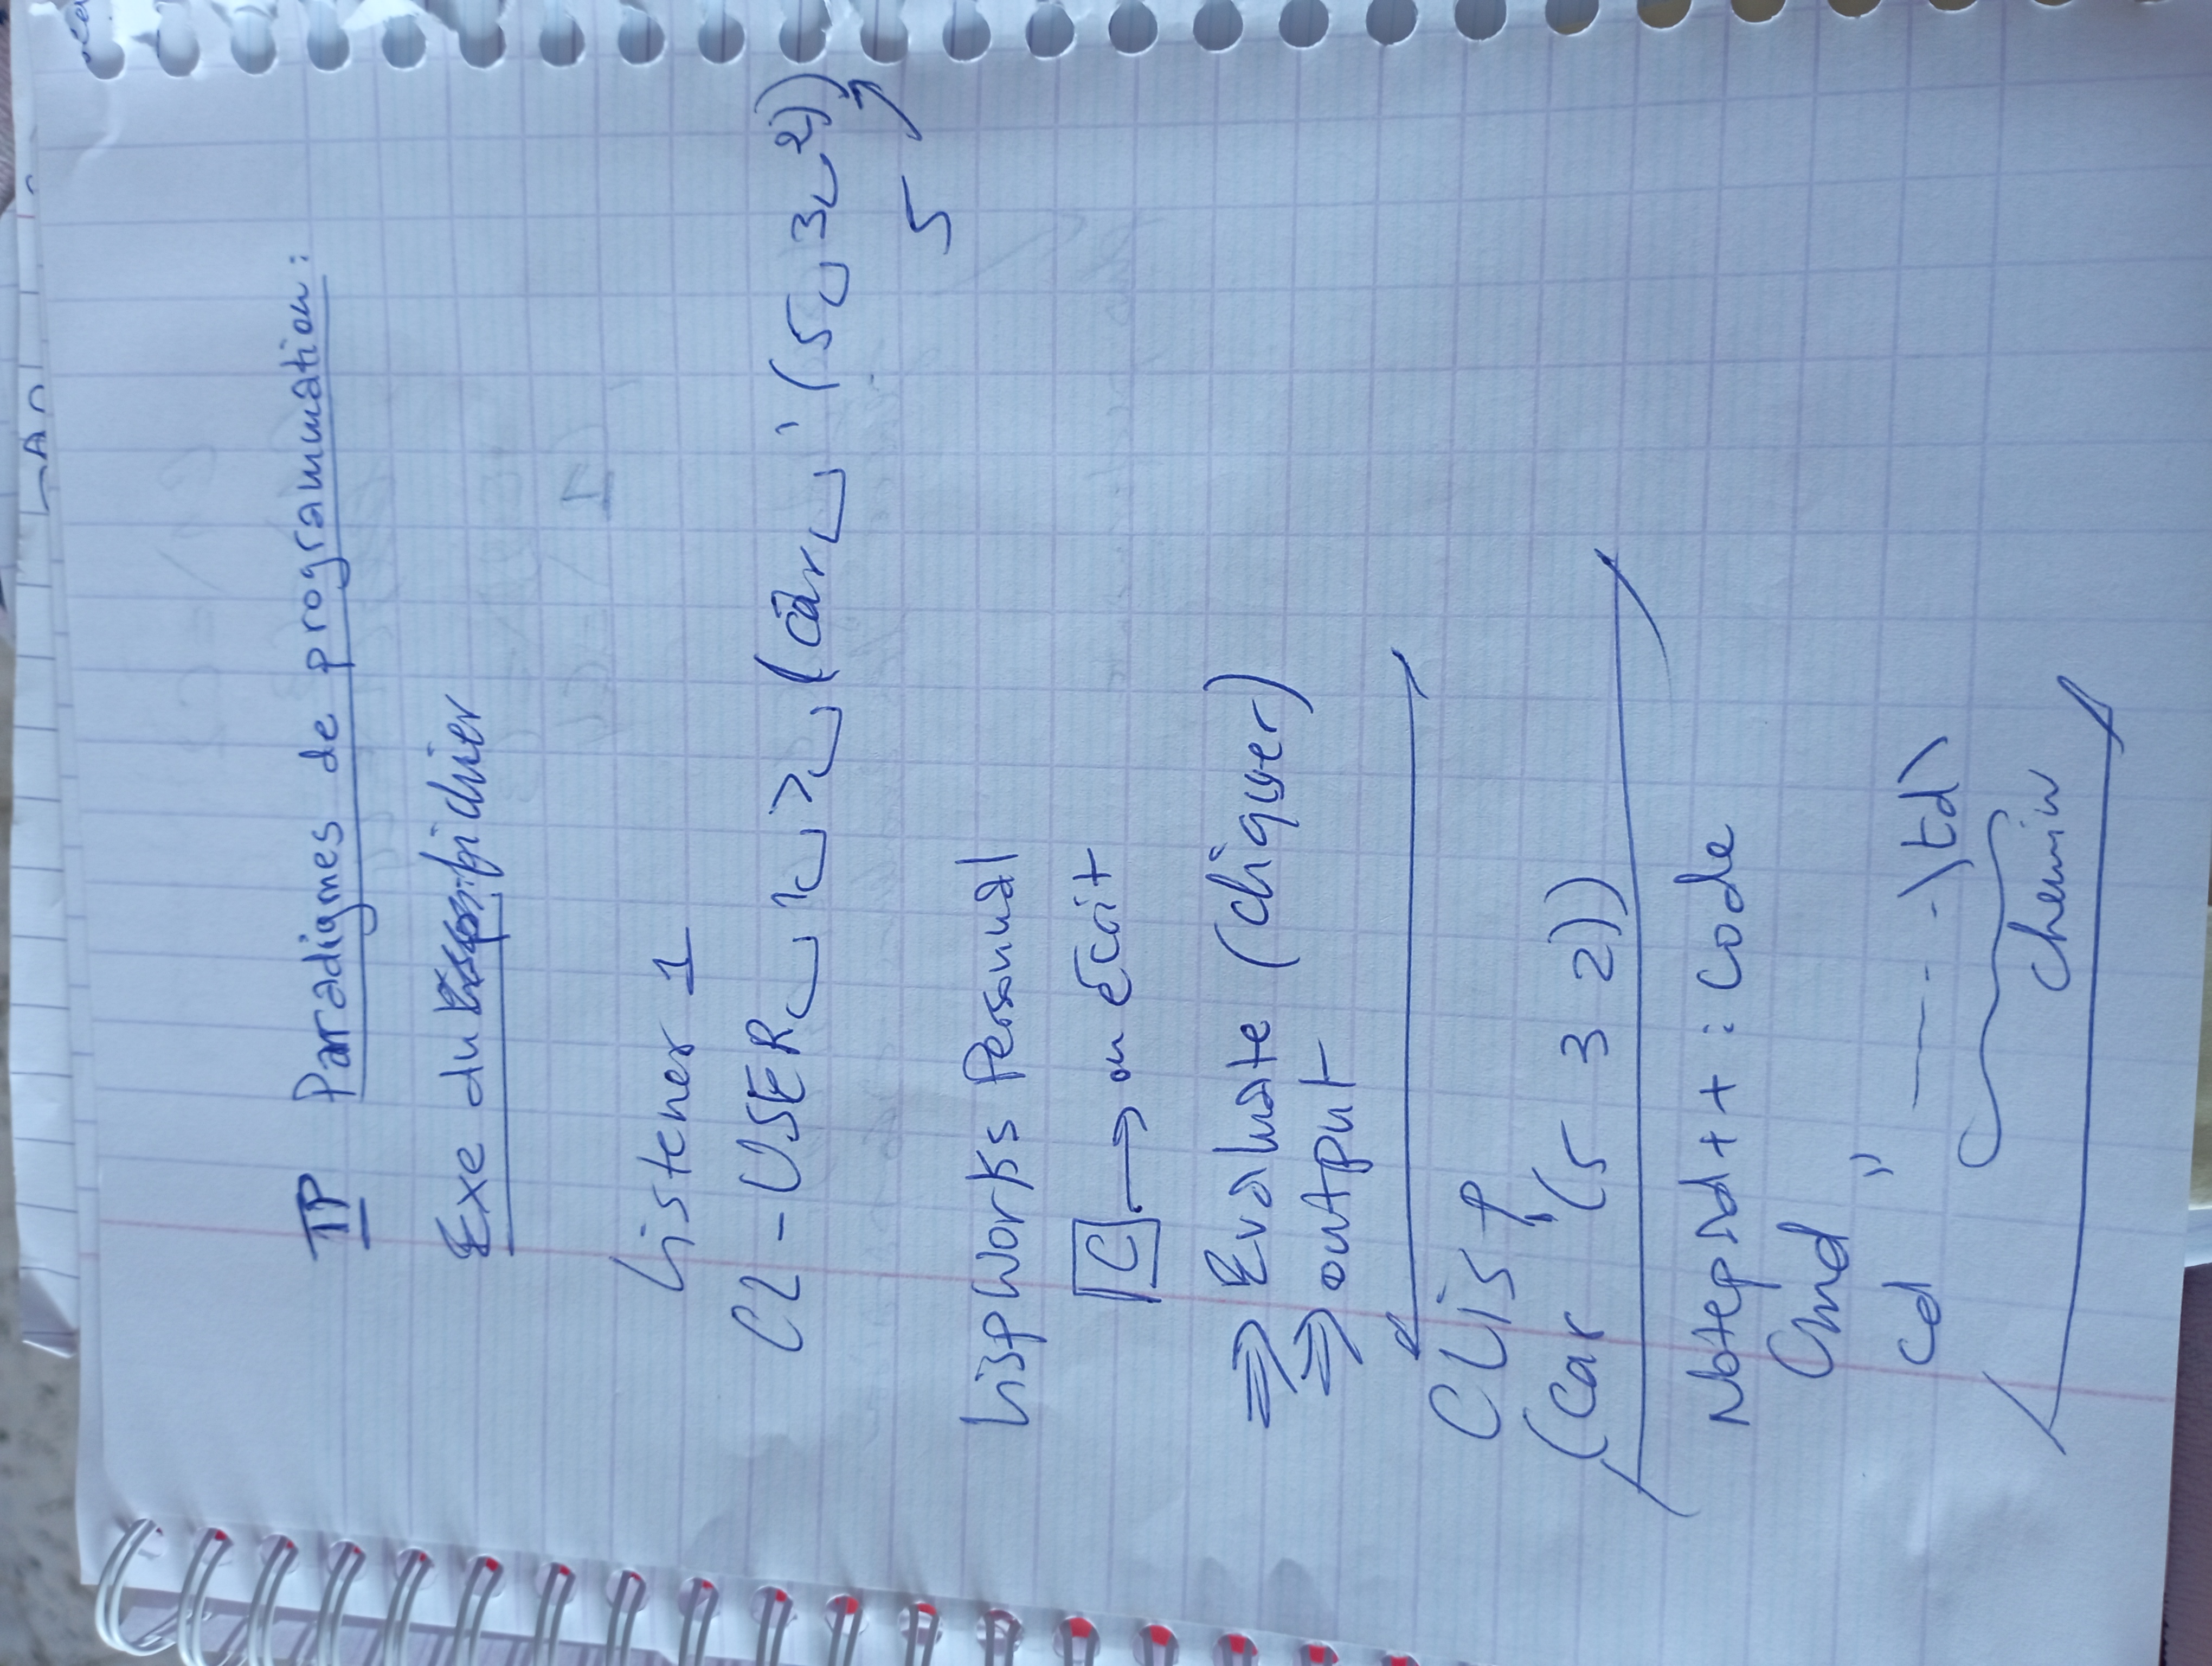 TP Paradigmes de programmation :
Exe du fichier
Listener 1
CL-USER␣1␣>␣(car␣'(5␣3␣2))
5
LispWorks Personnal
C → on écrit
⇒ Evaluate (cliquer)
⇒ output
CLisp
(car '(5 3 2))
Notepad++ : code
Cmd
cd " ---- -\td\
chemin